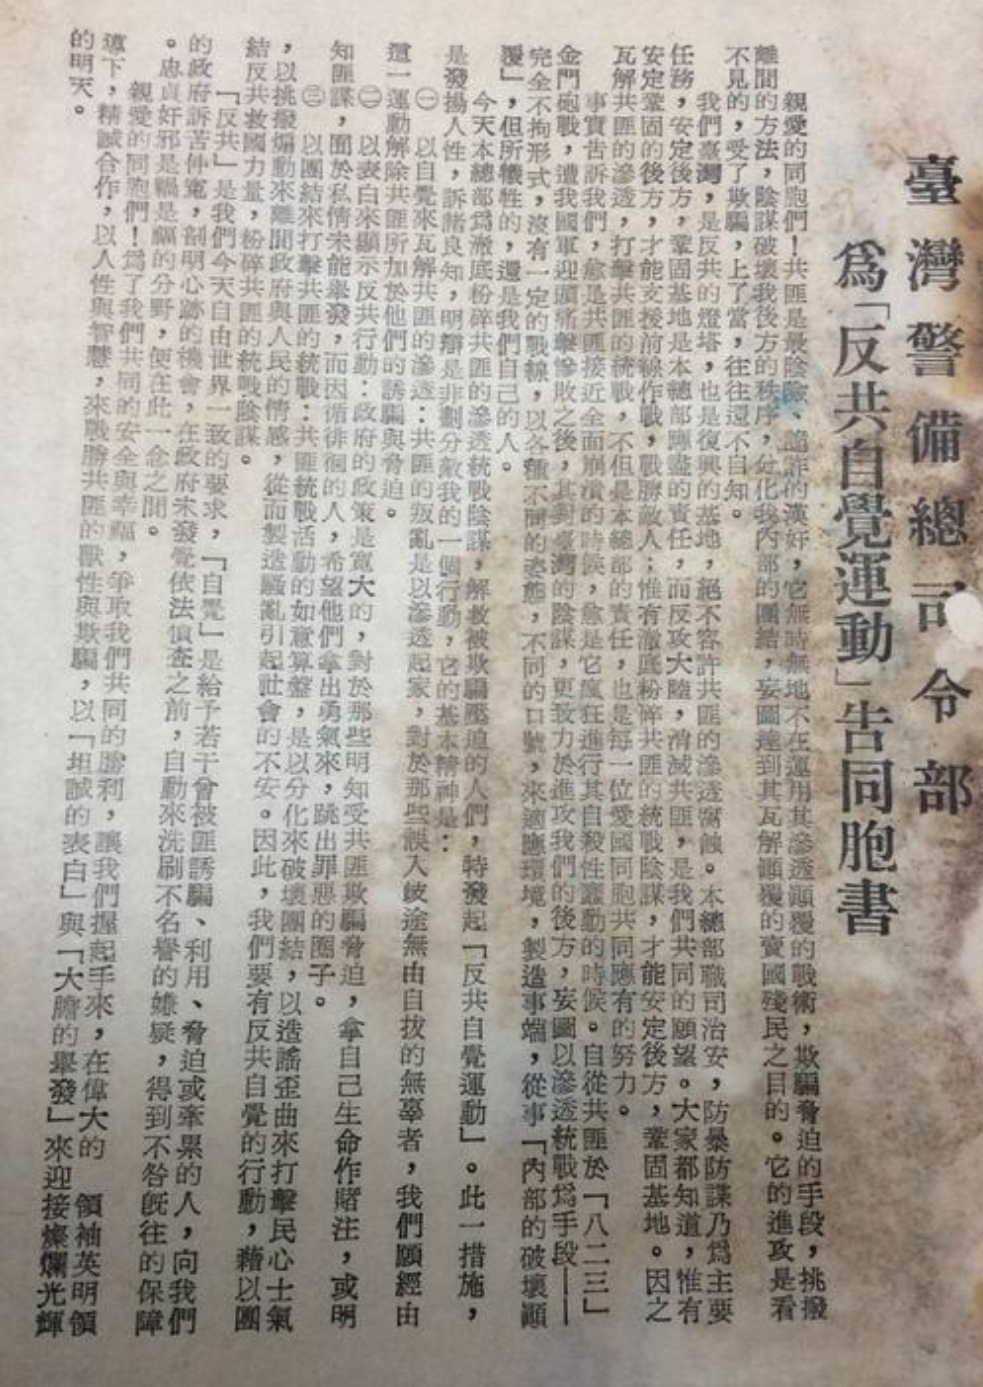 臺灣警備總司令部
爲「反共自覺運動」告同胞書
親愛的同胞們！共匪是最陰險、詭詐的漢奸，它無時無地不在運用其滲透顛覆的戰術，欺騙脅迫的手段，挑撥
離間的方法，陰謀破壞我後方的秩序，分化我內部的團結，妄圖達到其瓦解顛覆的賣國殘民之目的。它的進攻是看
不見的，受了欺騙，上了當，往往還不自知。
我們臺灣，是反共的燈塔，也是復興的基地，絕不容許共匪的滲透腐蝕。本總部職司治安，防暴防諜乃爲主要
任務，安定後方，鞏固基地是本總部應盡的責任，而反攻大陸，消滅共匪，是我們共同的願望。大家都知道，惟有
安定鞏固的後方，才能支援前線作戰，戰勝敵人；惟有澈底粉碎共匪的統戰陰謀，才能安定後方，鞏固基地。因之
瓦解共匪的滲透，打擊共匪的統戰，不但是本總部的責任，也是每一位愛國同胞共同應有的努力。
事實告訴我們，愈是共匪接近全面崩潰的時候，愈是它瘋狂進行其自殺性蠢動的時候。自從共匪於「八二三」
金門砲戰，遭我國軍迎頭痛擊慘敗之後，其對臺灣的陰謀，更致力於進攻我們的後方，妄圖以滲透統戰爲手段——
完全不拘形式，沒有一定的戰線，以各種不同的姿態，不同的口號，來適應環境，製造事端，從事「內部的破壞顛
覆」，但所犧牲的，還是我們自己的人。
今天本總部爲澈底粉碎共匪的滲透統戰陰謀，解救被欺騙壓迫的人們，特發起「反共自覺運動」。此一措施，
是發揚人性，訴諸良知，明辯是非劃分敵我的一個行動，它的基本精神是：
㊀　以自覺來瓦解共匪的滲透：共匪的叛亂是以滲透起家，對於那些誤入歧途無由自拔的無辜者，我們願經由
這一運動解除共匪所加於他們的誘騙與脅迫。
㊁　以表白來顯示反共行動：政府的政策是寬大的，對於那些明知受共匪欺騙脅迫，拿自己生命作賭注，或明
知匪諜，囿於私情未能舉發，而因循徘徊的人，希望他們拿出勇氣來，跳出罪惡的圈子。
㊂　以團結來打擊共匪的統戰：共匪統戰活動的如意算盤，是以分化來破壞團結，以造謠歪曲來打擊民心士氣
，以挑撥煽動來離間政府與人民的情感，從而製造騷亂引起社會的不安。因此，我們要有反共自覺的行動，藉以團
結反共救國力量，粉碎共匪的統戰陰謀。
「反共」是我們今天自由世界一致的要求，「自覺」是給予若干曾被匪誘騙、利用、脅迫或牽累的人，向我們
的政府訴苦伸寃，剖明心跡的機會，在政府未發覺依法偵查之前，自動來洗刷不名譽的嫌疑，得到不咎旣往的保障
。忠貞奸邪是禍是福的分野，便在此一念之間。
親愛的同胞們！爲了我們共同的安全與幸福，爭取我們共同的勝利，讓我們握起手來，在偉大的　領袖英明領
導下，精誠合作，以人性與智慧，來戰勝共匪的獸性與欺騙，以「坦誠的表白」與「大膽的舉發」來迎接燦爛光輝
的明天。